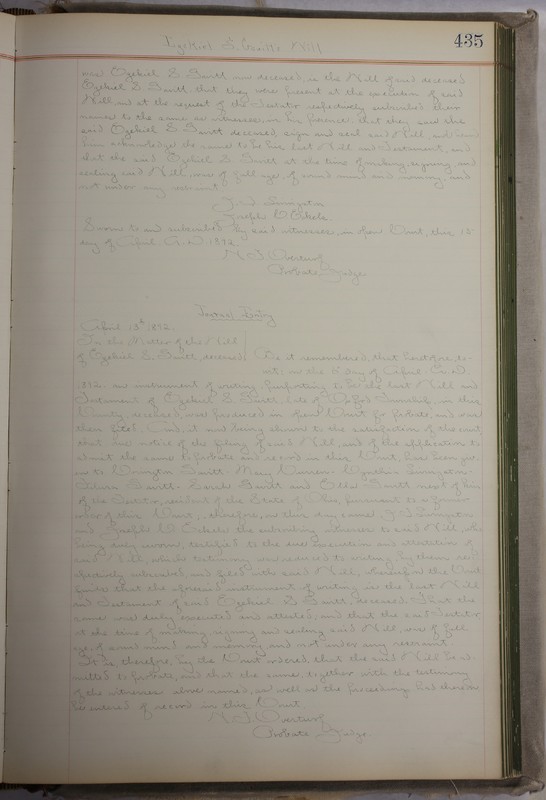 Ezekiel S. Gantt's Will
435
and Ezekiel S. Gantt now deceased, is the Will of said deceased
Ezekiel S. Gantt, that they were present at the execution of said
Will, and at the request of the Testator respectively subscribed their
names to the same as witnesses, in his presence, that they saw the
said Ezekiel S. Gantt deceased, sign and seal said Will and heard
him acknowledge the same to be his last Will and Testament, and
that the said Ezekiel S. Gantt at the time of making, signing, and
sealing said Will, was of full age, of sound mind and memory, and
not under any restraint.
Joseph
Sworn to and subscribed by said witnesses, in open Court, this 13
day of April A.D. 1892.
Probate Judge
Journal Entry
April 13th 1892.
In the Matter of the Will
of Ezekiel S. Gantt, deceased. Be it remembered, that heretofore, to-
wit: on the 5 day of April A.D.
1892. an instrument of writing, purporting to be the last Will and
Testament of Ezekiel S. Gantt, late of Township, in this
County, deceased, was produced in open Court for probate, and was
then filed. And, it now being shown to the satisfaction of the court,
that due notice of the filing of said Will, and of the application to
admit the same to probate and record in this Court, has been giv-
en to Gantt, Mary Warren,
Gantt, Sarah Gantt and Gantt next of kin
of the Testator, resident of the State of Ohio, pursuant to a former
order of this Court, therefore, on this day came J.
and Joseph the subscribing witnesses to said Will, who
being duly sworn, testified to the due execution and attestation of
said Will, which testimony was reduced to writing, by them res-
pectively subscribed, and filed with said Will, whereupon the Court
finds that the aforesaid instrument of writing is the last Will
and Testament of said Ezekiel S. Gantt, deceased, That the
same was duly executed and attested, and that the said testator
at the time of making, signing and sealing said Will, was of full
age, of sound mind and memory, and not under any restraint.
It is, therefore, by the Court ordered, that the said Will be ad-
mitted to probate, and that the same, together with the testimony
of the witnesses above named, as well as the proceedings had thereon
be entered of record in this Court.
Probate Judge